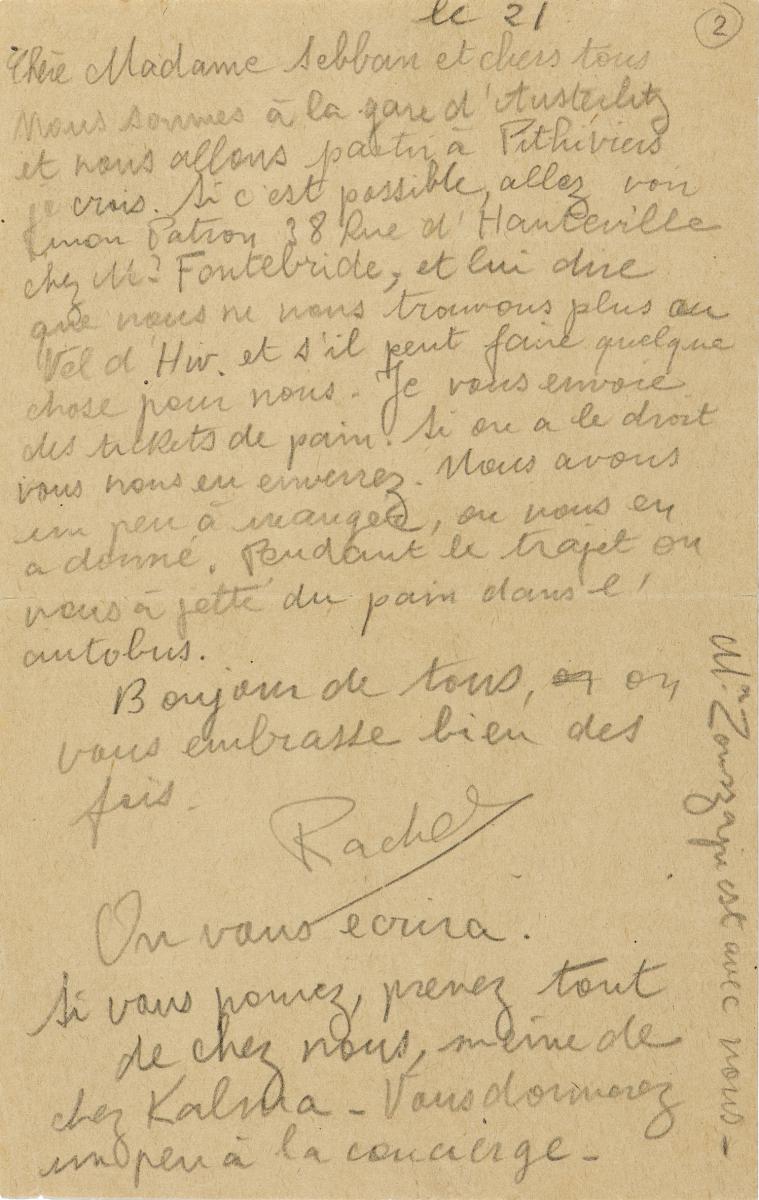 le 21
2
Chère Madame Sebban et chers tous
Nous sommes à la gare d'Austerlitz
et nous allons partir à Pithiviers
je crois. Si c'est possible, allez voir
mon Patron 38 Rue d'Hauteville
chez Mr Fontebride, et lui dire
que nous ne nous trouvons plus au
Vel d'Hiv. et s'il peut faire quelque
chose pour nous. Je vous envoie
des tickets de pain. Si on a le droit
vous nous en enverrez. Nous avons
un peu à manger, on nous en
a donné. Pendant le trajet on
nous à jetté du pain dans l'
autobus.
Bonjour de tous, on
vous embrasse bien des
fois.
Rachel
On vous écrira.
Si vous pouvez, prenez tout
de chez nous, même de
chez Kalma - Vous donnerez
un peu à la concierge -
est avec nous -